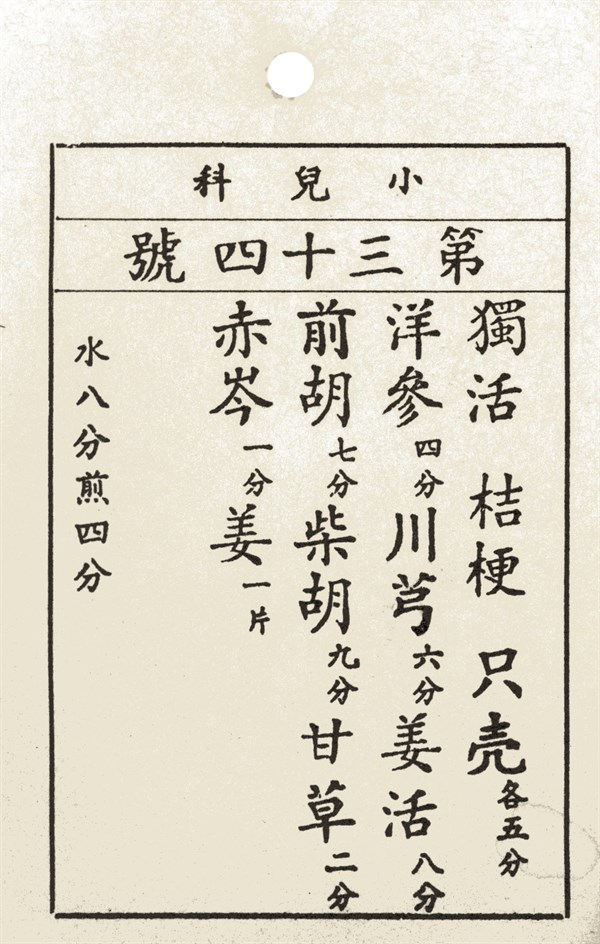 小兒科
第三十四號
獨活 桔梗 只壳各五分
洋參四分川芎六分姜活八分
前胡七分柴胡九分甘草二分
赤岑一分姜一片
水八分煎四分